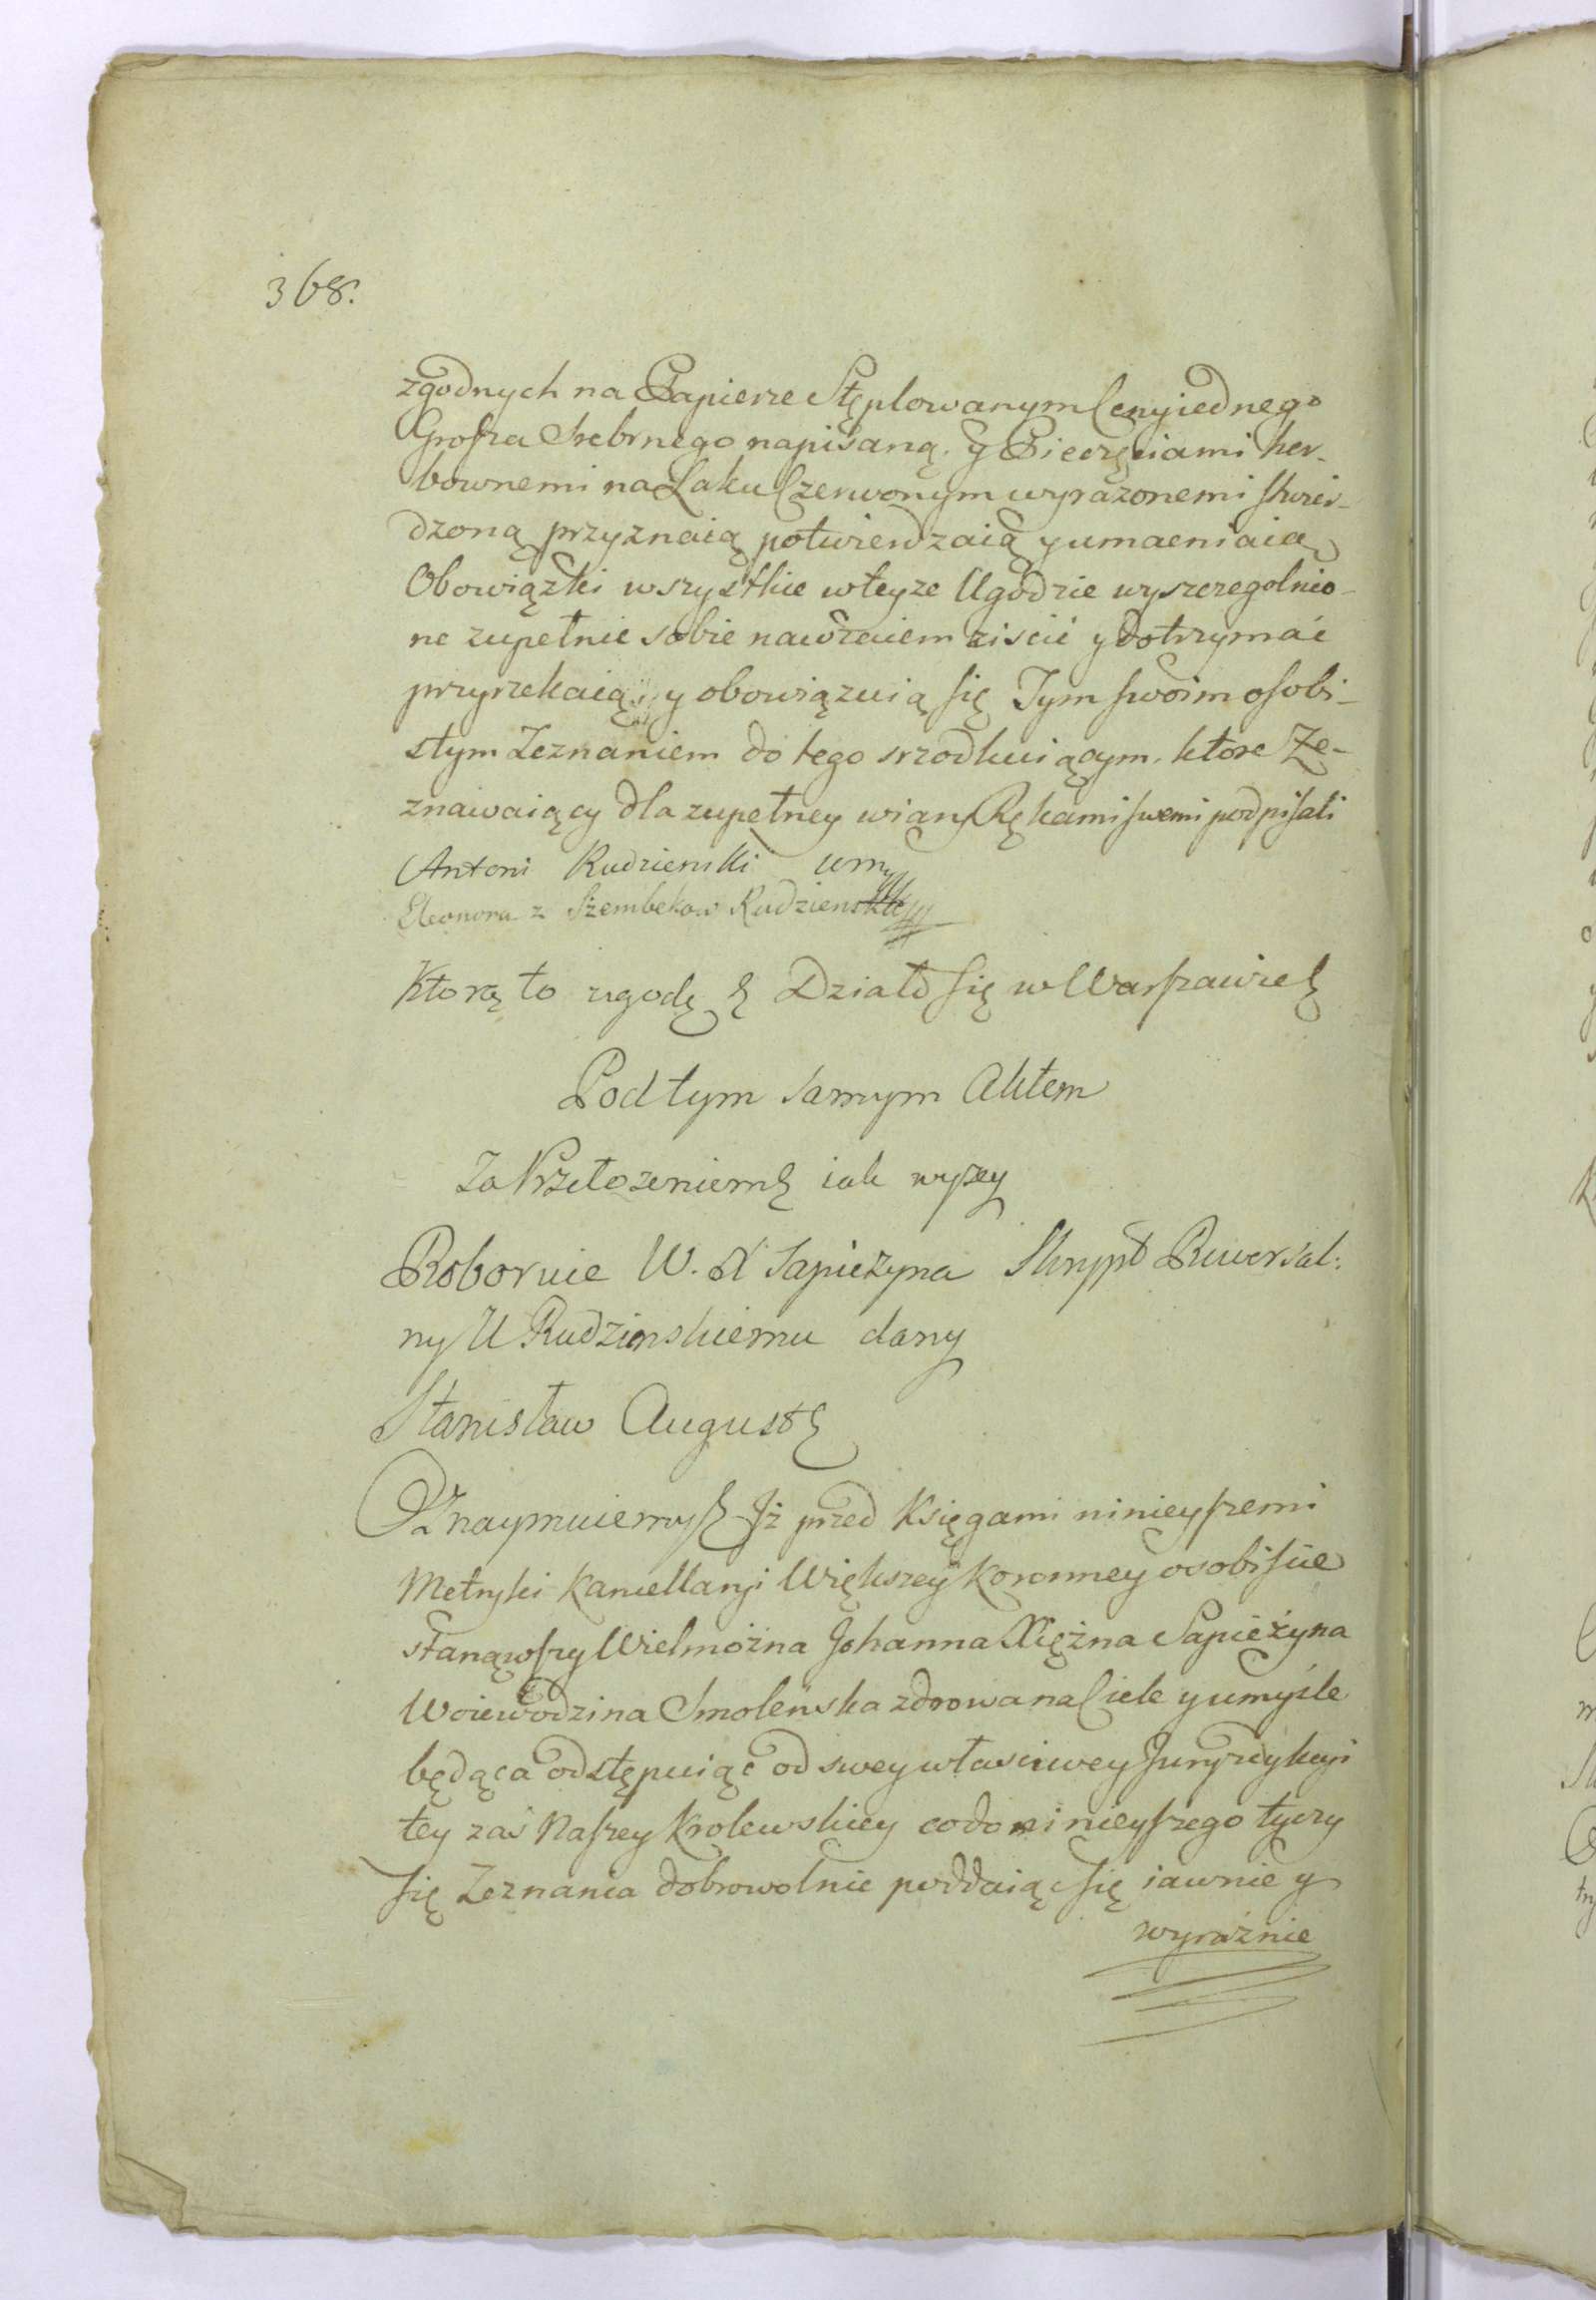 368.
zgodnych na Papierze Stęplowanym Ceny iednego
Grosza Srebrnego napisaną. y Pieczęciami her-
bownemi na Laku Czerwonym wyrażonemi stwier-
dzoną przyznaią potwierdzaią y umacniaią
Obowiązki wszystkie w teyże Ugodzie wyszczegolnio-
ne zupełnie sobie nawzaiem ziścić y dotrzymać
przyrzekaią y obowiązuią się Tym swoim osobi-
stym Zeznaniem do tego srzodkuiącym, ktore Ze-
znawaiący dla zupełney wiary Rękami swemi podpisali
Antoni Rudzienski
Eleonora z Szembekow Rudzienska
Ktorą to ugodę & Działo się w Warszawie &
Pod tym samym Aktem
Za Przełożeniem & iak wyżey
Roboruie W. X Sapieżyna Skrypt Rewersal:
ny U Rudzinskiemu dany
Stanisław August &
Oznaymuiemy & Iż przed Księgami ninieyszemi
Metryki Kancellaryi Większey Koronney osobiście
stanąwszy Wielmożna Johanna Xiężna Sapieżyna
Woiewodzina Smoleńska zdrowa na Ciele y umyśle
będąca odstępuiąc od swey właściwey Juryzdykcyi
tey zaś Naszey Krolewskiey co do ninieyszego tyczy
się Zeznania dobrowolnie poddaiąc się iawnie y
wyraźnie